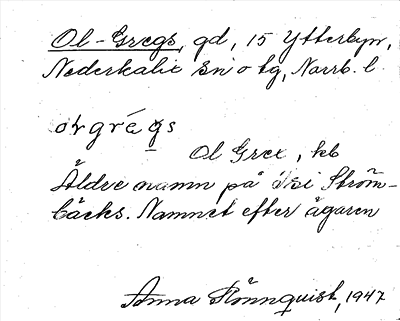 Ol-Gregs, gd, 15 Ytterbyn,
Nederkalix sn o tg, Norrb. l.
ol grégs
Ol Grex, kb
Äldre namn på Isi Ström-
bäcks. Namnet efter ägaren
Anna Rönnquist, 1947